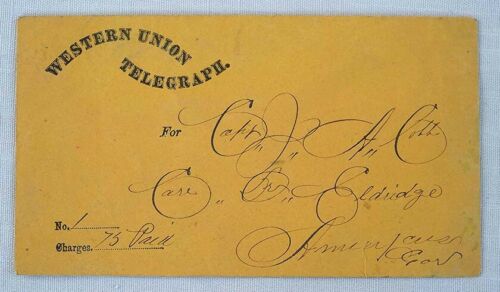 WESTERN UNION
TELEGRAPH.
For Capt J,, A,, Cobb
Care,, B,, Eldridge
No. 1
Charges. 75 Paid